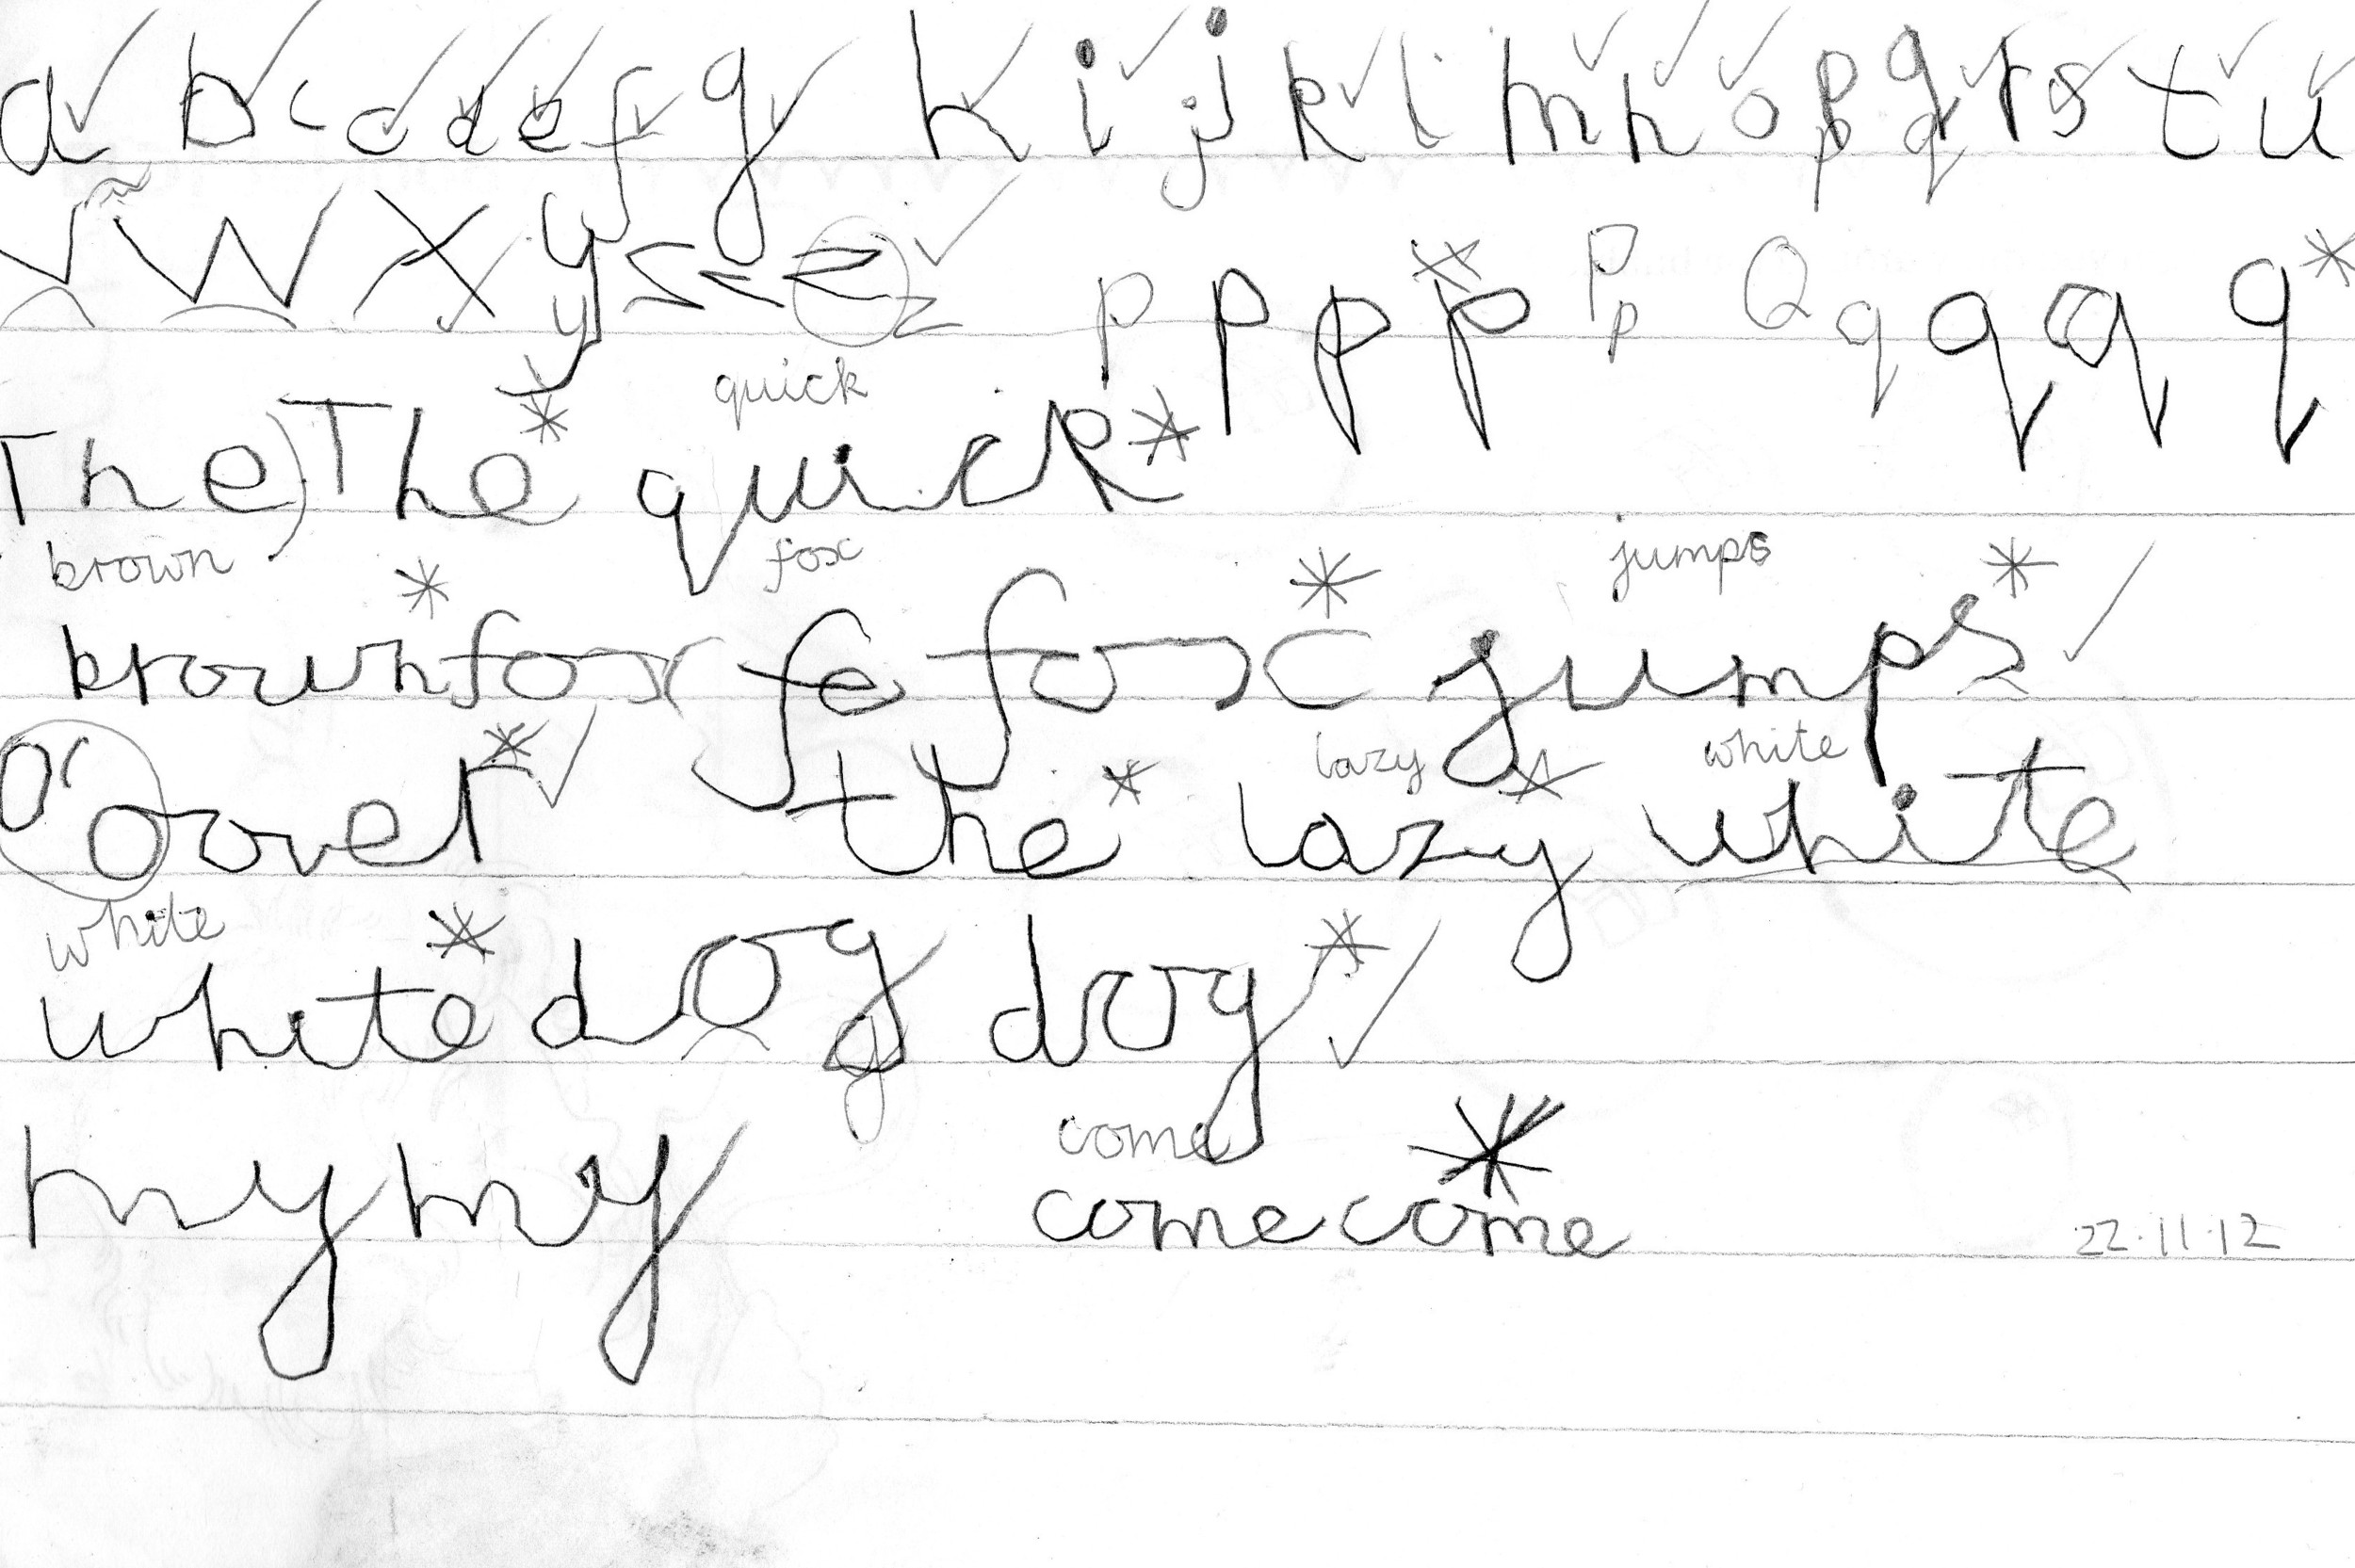 a b c c d e f g h i j j k l m n o p p q q r s t u
v w x y y z z z z p p p p P p Q q q q q
quick
The) The quick
brown fox jumps
brown fox fe fox jumps
lazy white
or over the lazy white
white
white dog g dog
come
my my come come
22.11.12